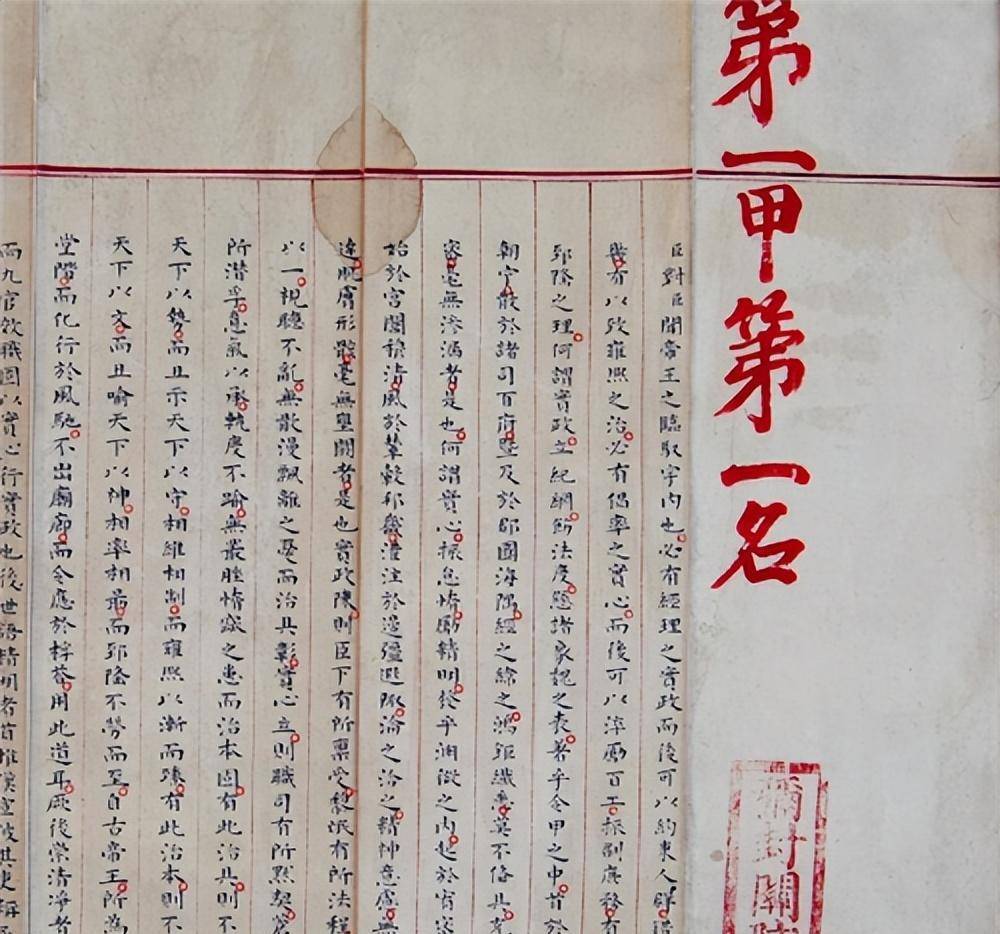 第一甲第一名
彌封關防
臣對臣聞帝王之臨馭宇內也必有經理之實政而後可以約束人群
幾有以致雍熙之治必有倡率之實心而後可以淬勵百工振刷庶務有
郅隆之理何謂實政立紀綱飭法度懸諸象魏之表著乎令甲之中首於
朝宁散於諸司百府暨及於郡國海隅經之緯之鴻鉅纖悉莫不備具充
密毫無滲漏者是也何謂實心振怠惰勵精明發乎淵微之內起於宥密
始於宮闈穆清風於輦轂邦畿灌注於邊疆遐陬淪之洽之精神意慮無
違肌膚形骸毫無壅閼者是也實政陳則臣下有所稟受黎氓有所法程
以一視聽不亂無散漫飄離之憂而治具彰實心立則職司有所默契蒼
所潛孚意氣以承軌度不踰無叢脞惰窳之患而治本固有此治具則不
天下以勢而且示天下以守相維相制而雍熙以漸而臻有此治本則不
天下以文而且喻天下以神相率相勗而郅隆不勞而至自古帝王所為
堂階而化行於風馳不出廟廊而令應於桴答用此道耳厥後崇清淨者
而九官效職固以實心行實政也後世語精明者首推漢宣彼其吏稱